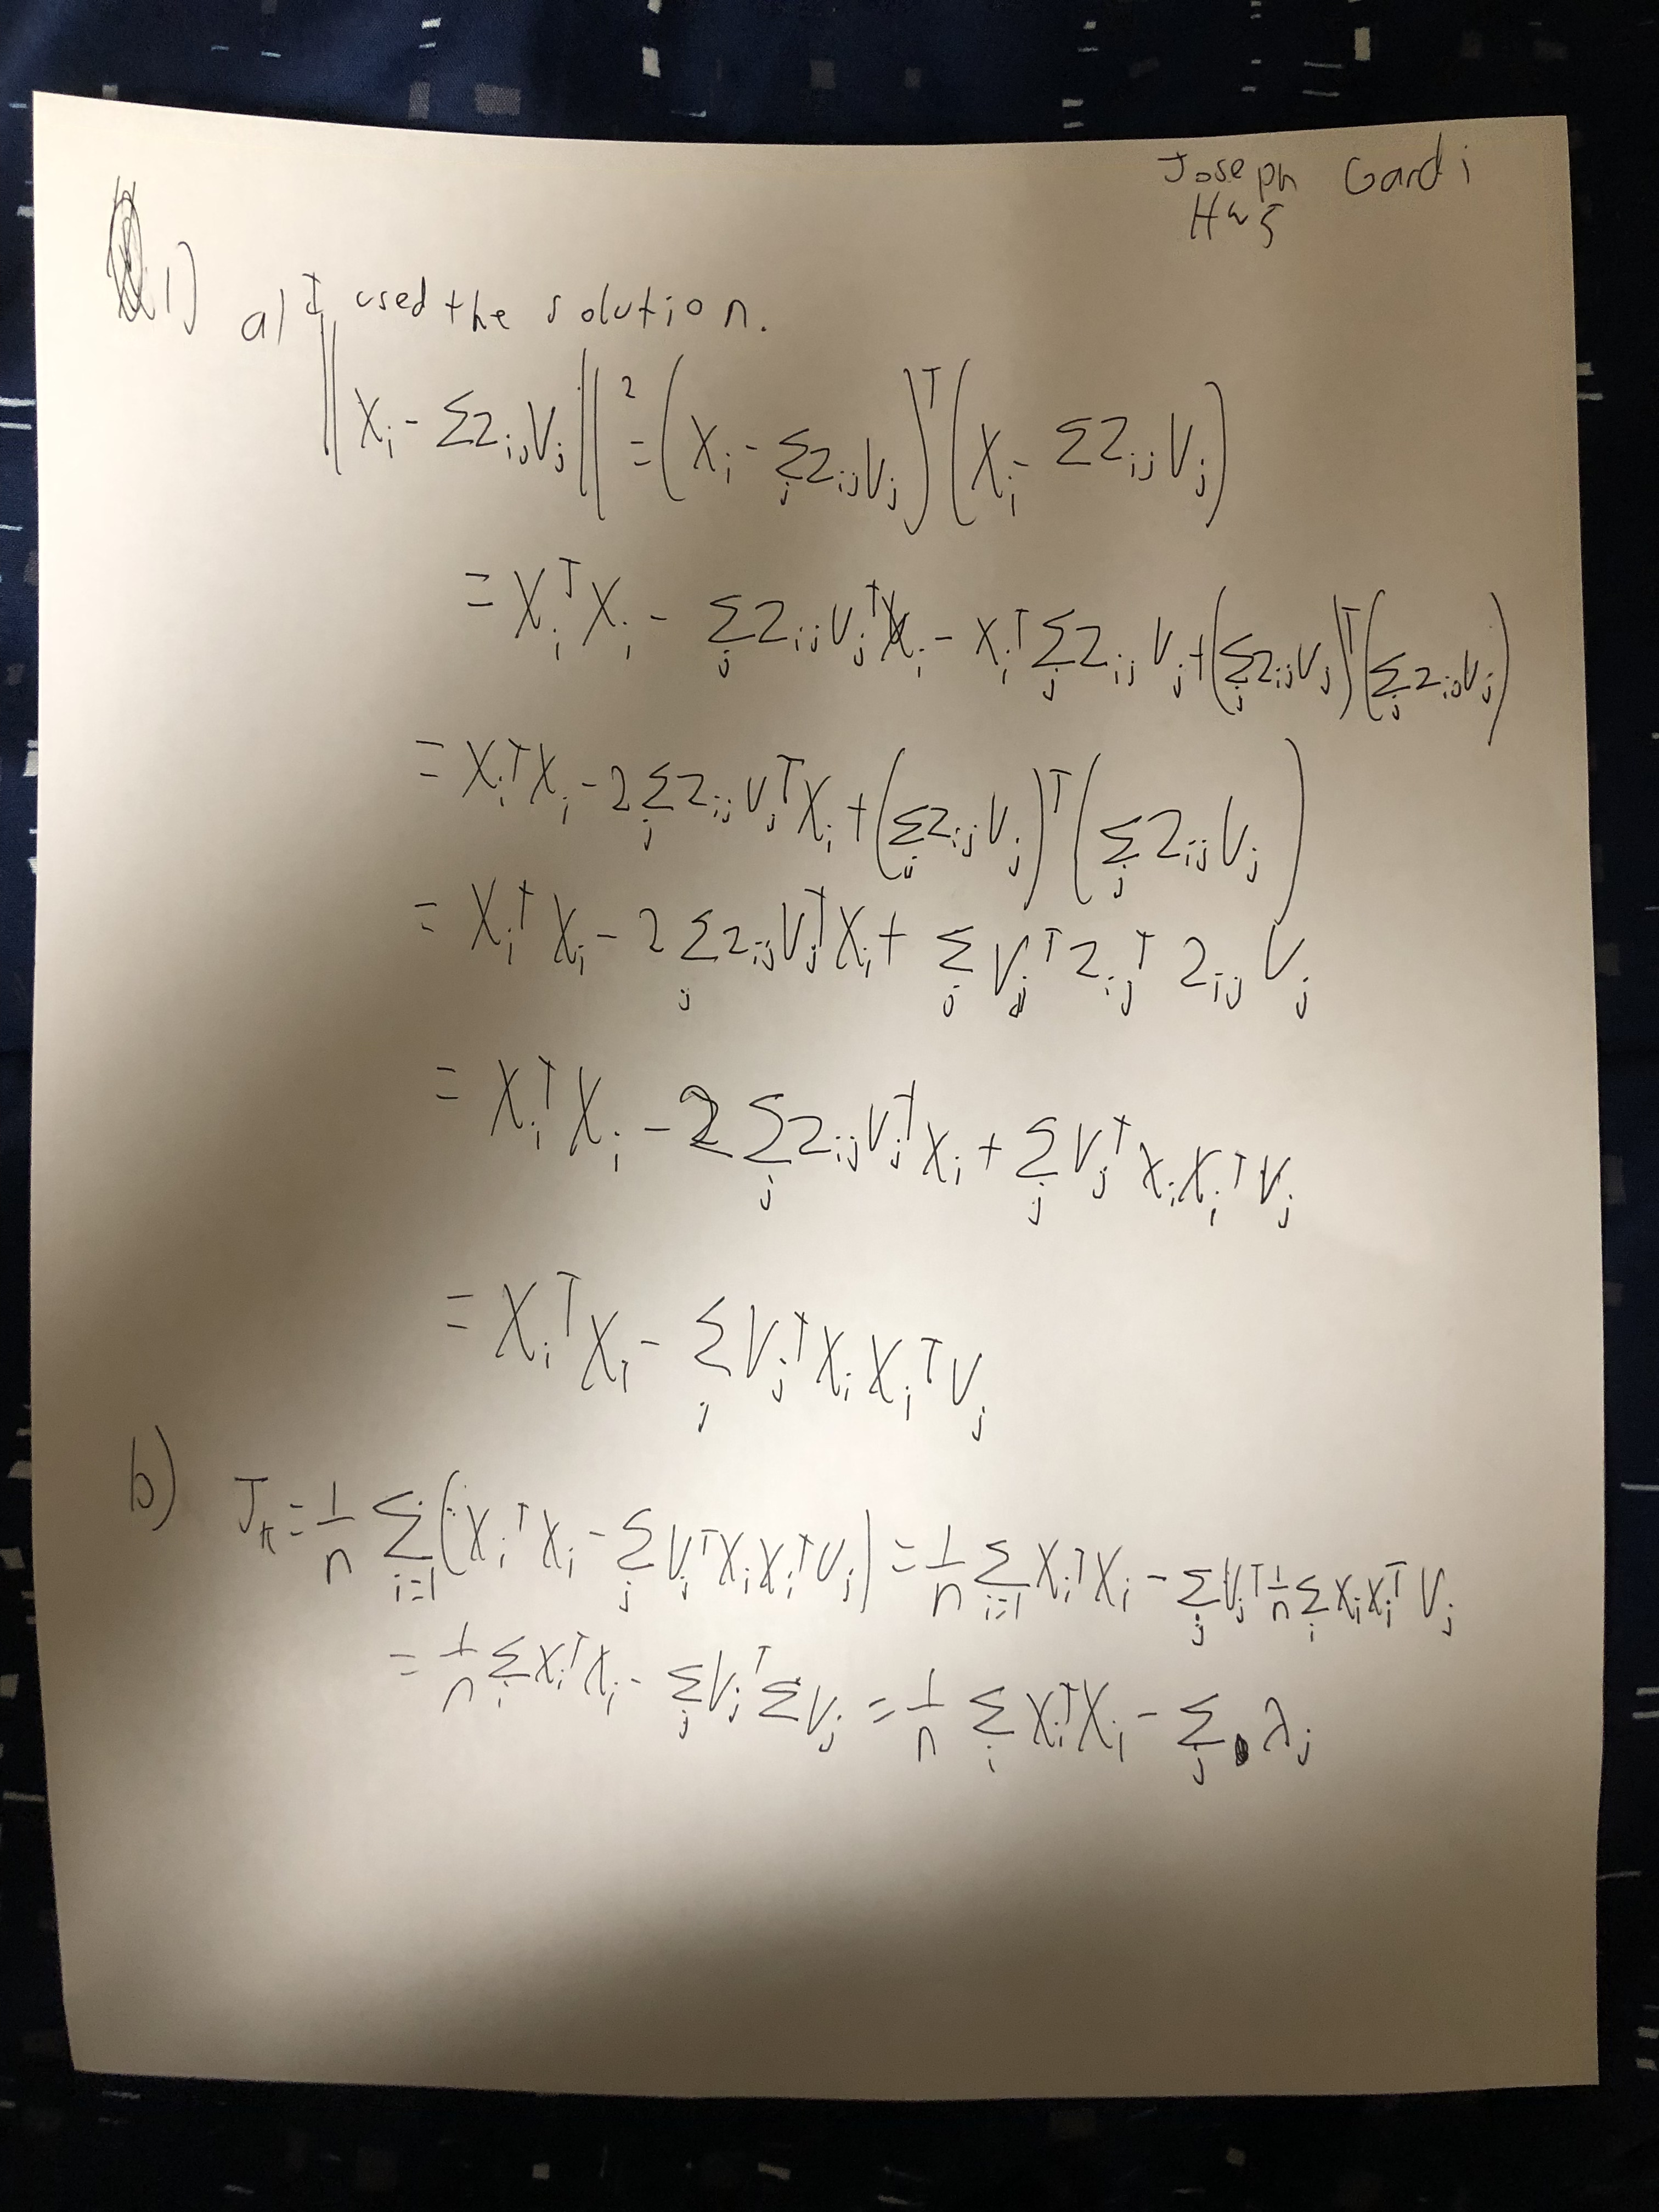 Joseph Gardi
HW 5
1) a) I used the solution.
‖X_i - Σz_ij V_j‖² = (X_i - Σ_j z_ij V_j)^T (X_i - Σz_ij V_j)
= X_i^T X_i - Σ_j z_ij V_j^T X_i - X_i^T Σ_j z_ij V_j + (Σ_j z_ij V_j)^T (Σ_j z_ij V_j)
= X_i^T X_i - 2 Σ_j z_ij V_j^T X_i + (Σ_j z_ij V_j)^T (Σ_j z_ij V_j)
= X_i^T X_i - 2 Σ_j z_ij V_j^T X_i + Σ_j V_j^T z_ij^T z_ij V_j
= X_i^T X_i - 2 Σ_j z_ij V_j^T X_i + Σ_j V_j^T X_i X_i^T V_j
= X_i^T X_i - Σ_j V_j^T X_i X_i^T V_j
b) J_k = 1/n Σ_{i=1} (X_i^T X_i - Σ_j V_j^T X_i X_i^T V_j) = 1/n Σ_{i=1} X_i^T X_i - Σ_j V_j^T 1/n Σ_i X_i X_i^T V_j
= 1/n Σ_i X_i^T X_i - Σ_j V_j^T Σ V_j = 1/n Σ_i X_i^T X_i - Σ_j λ_j